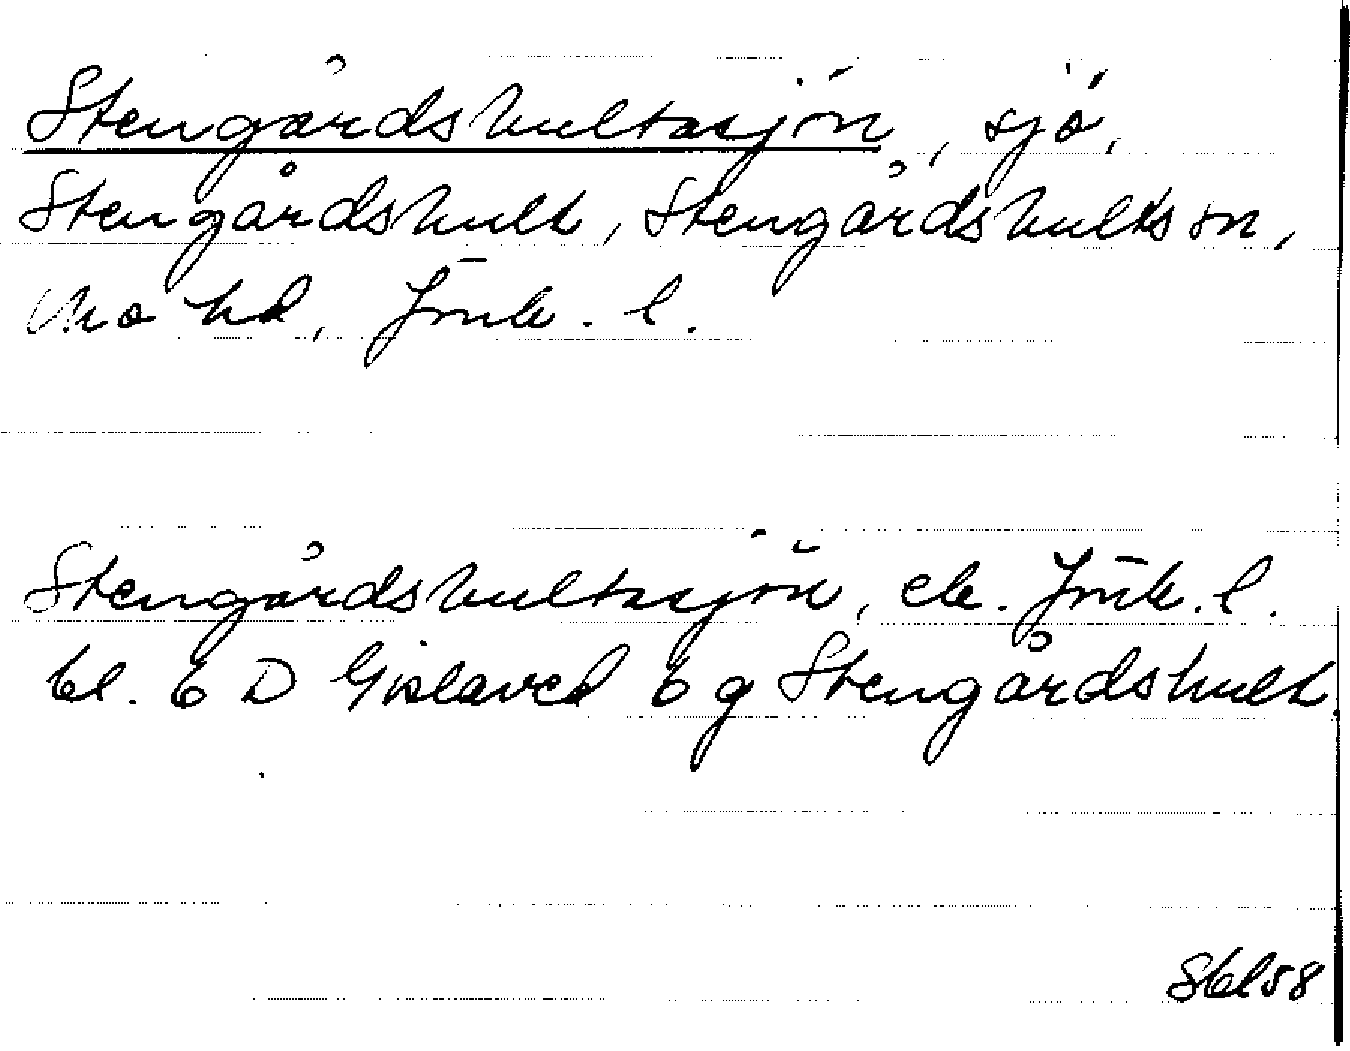 Stengårdshultasjön, sjö,
Stengårdshult, Stengårdshults sn,
Mo hd, Jönk. l.
Stengårdshultasjön, ek. Jönk. l.
bl. 6 D Gislaved 6 g Stengårdshult.